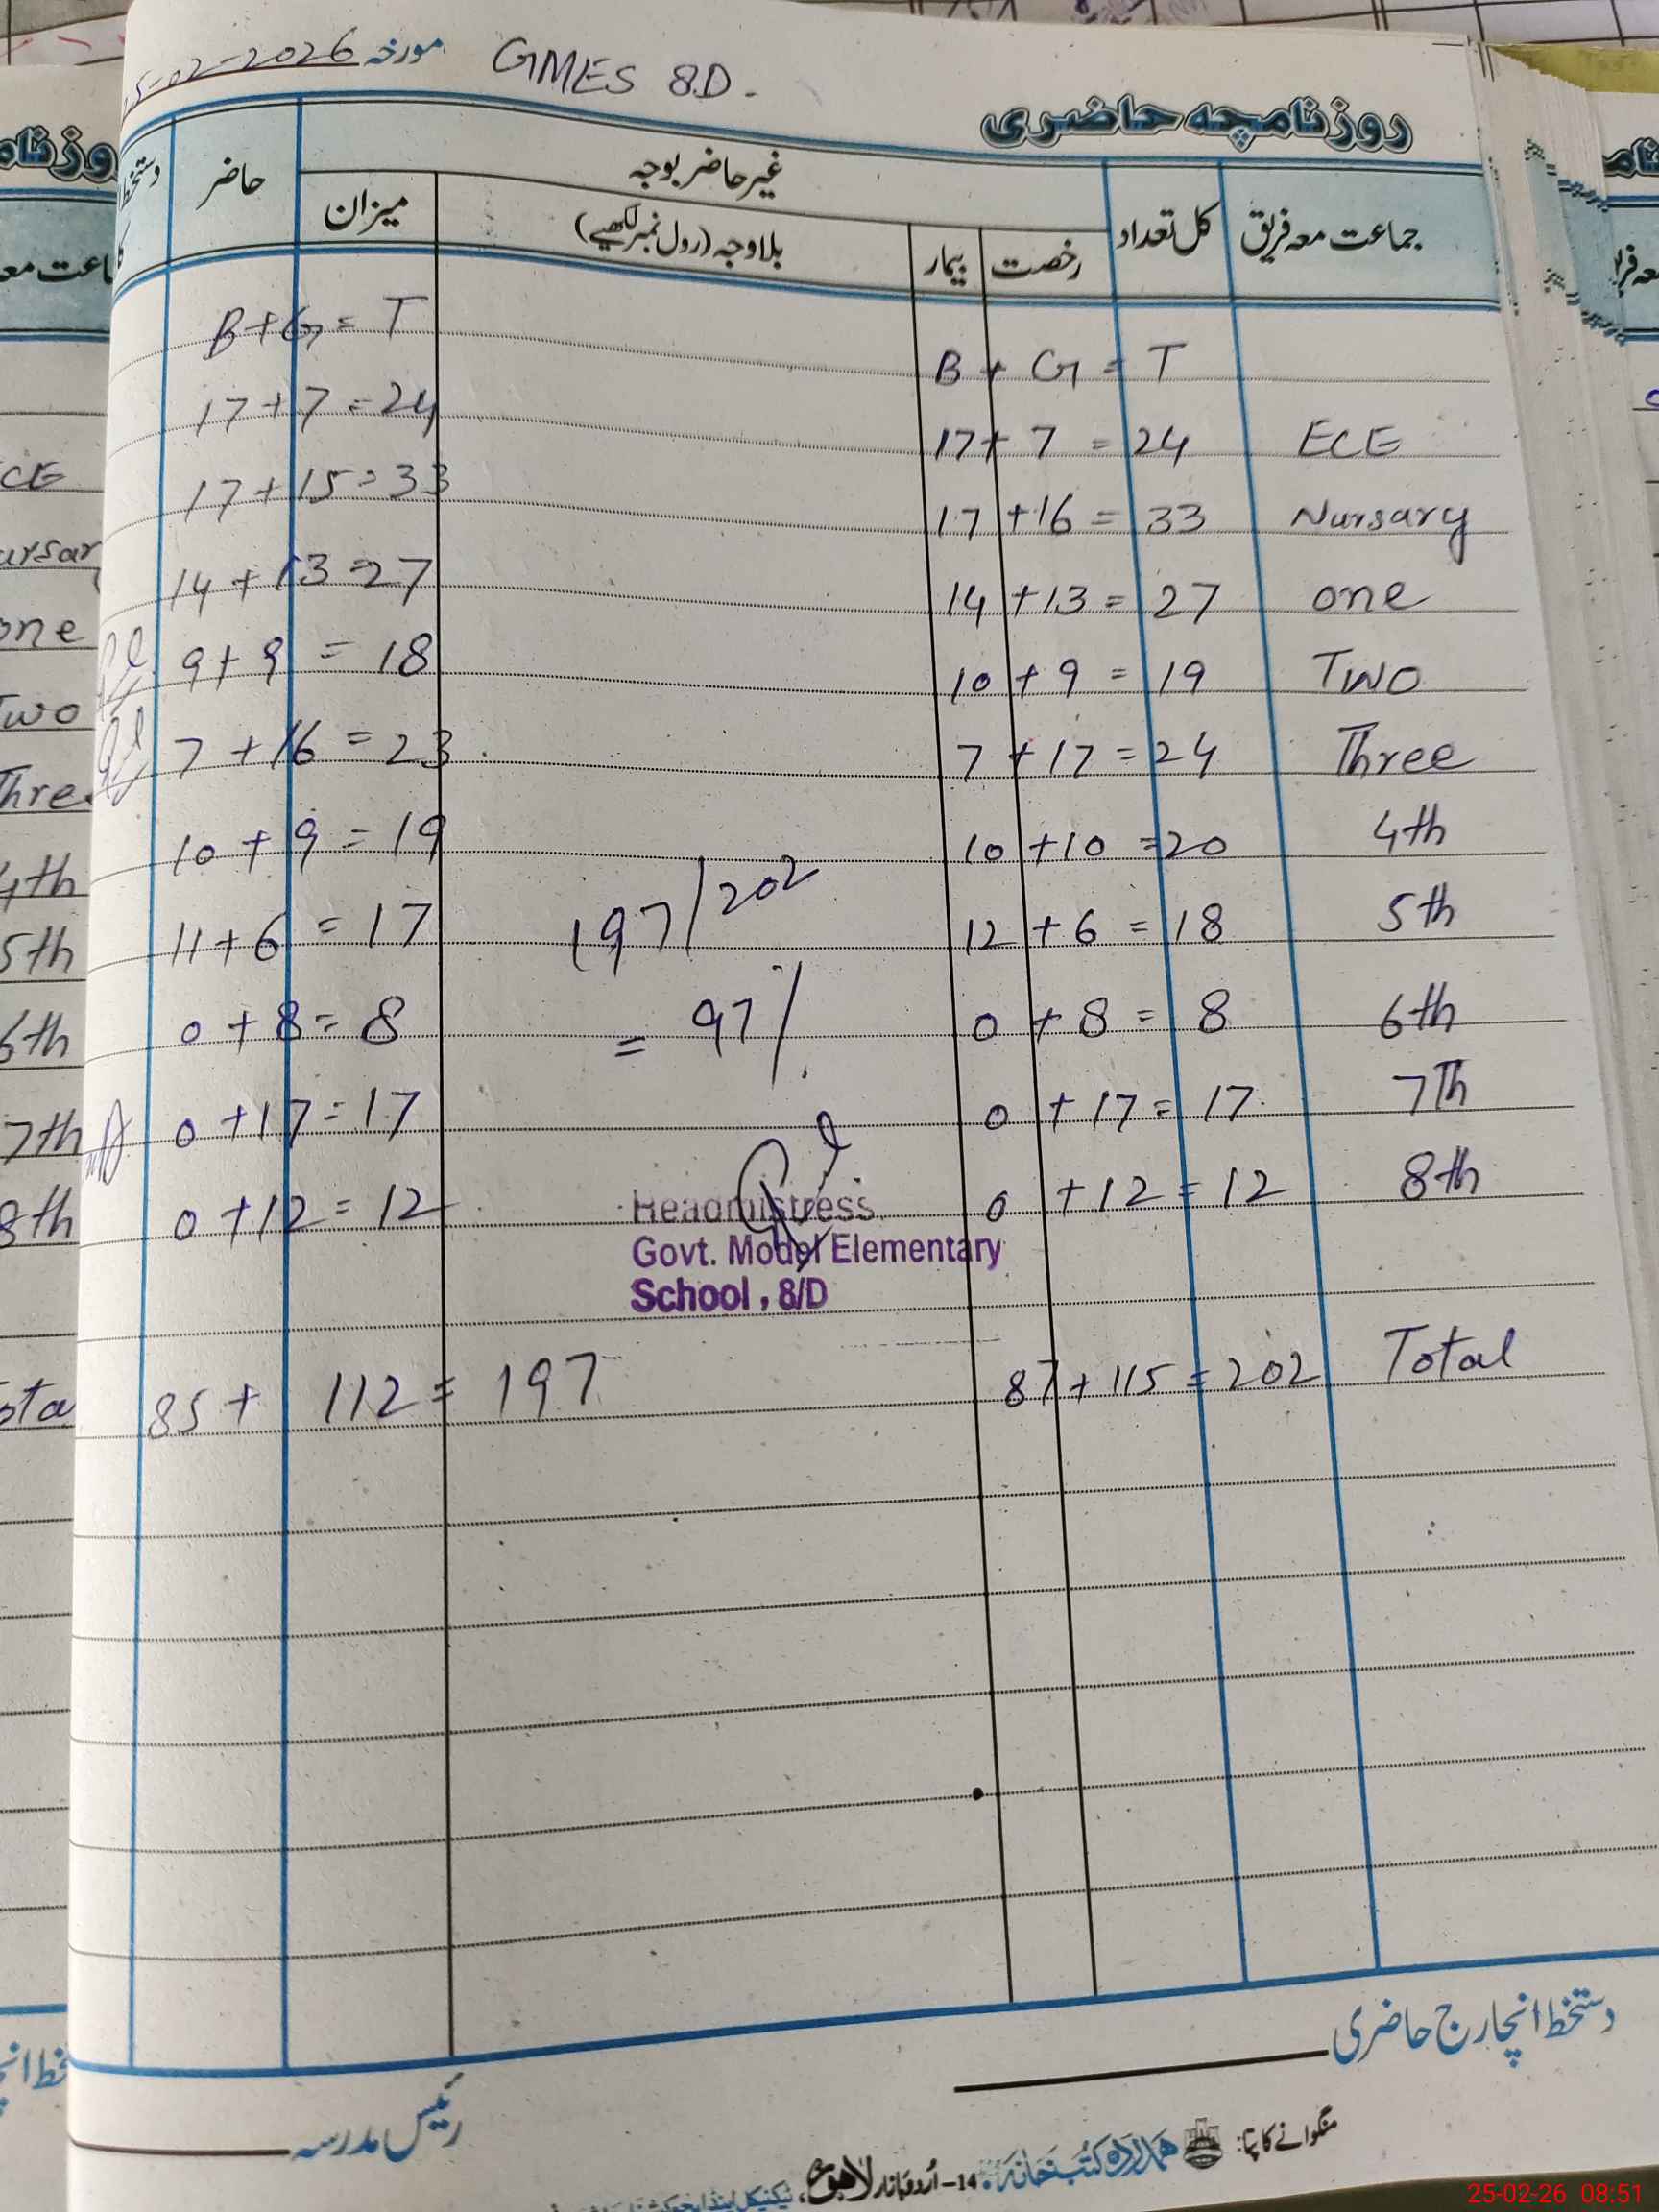 مورخہ 5-02-2026 GMES 8D.
روزنامچہ حاضری
جماعت معہ فریق کل تعداد غیر حاضر بوجہ حاضر دستخط
رخصت بیمار بلاوجہ (رول نمبر لکھیے) میزان
B + G = T B + G = T
ECE 17 + 7 = 24 17 + 7 = 24
Nursary 17 + 16 = 33 17 + 15 = 33
one 14 + 13 = 27 14 + 13 = 27
Two 10 + 9 = 19 9 + 9 = 18
Three 7 + 17 = 24 7 + 16 = 23
4th 10 + 10 = 20 10 + 9 = 19
5th 12 + 6 = 18 11 + 6 = 17
197/202
6th 0 + 8 = 8 0 + 8 = 8
= 97%
7Th 0 + 17 = 17 0 + 17 = 17
8th 0 + 12 = 12 0 + 12 = 12
Headmistress
Govt. Model Elementary
School, 8/D
Total 87 + 115 = 202 85 + 112 = 197
دستخط انچارج حاضری
رئیس مدرسہ
منگوانے کا پتا: ہمدرد کتب خانہ 14-اُردو بازار لاہور
CE
ursar
one
Two
Three
4th
5th
6th
7th
8th
ota
25-02-26 08:51